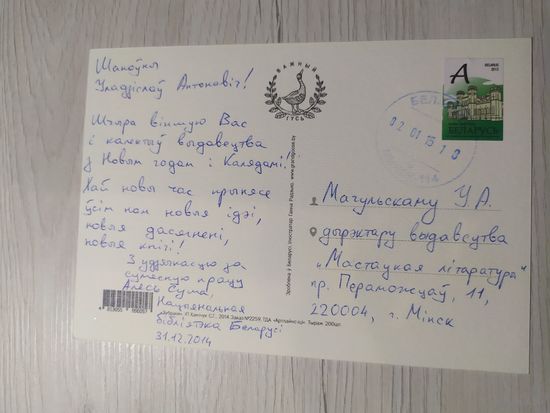 Шаноўны
Уладзіслаў Антонавіч!
Шчыра віншую Вас
і калектыў выдавецтва
з Новым годам і Калядамі!
Хай новы час прынясе
ўсім нам новыя ідэі,
новыя дасягненні,
новыя кнігі!
З удзячнасцю за
сумесную працу
Алесь Суша,
Нацыянальная
бібліятэка Беларусі
31.12.2014
ВАЖНЫЙ
ГУСЬ
Зроблена ў Беларусі, ілюстратар: Ганна Радзько,
A
БЕЛАРУСЬ
02 01 15 1
Мачульскаму У.А.
дырэктару выдавецтва
"Мастацкая літаратура"
пр. Пераможцаў, 11,
220004, г. Мінск